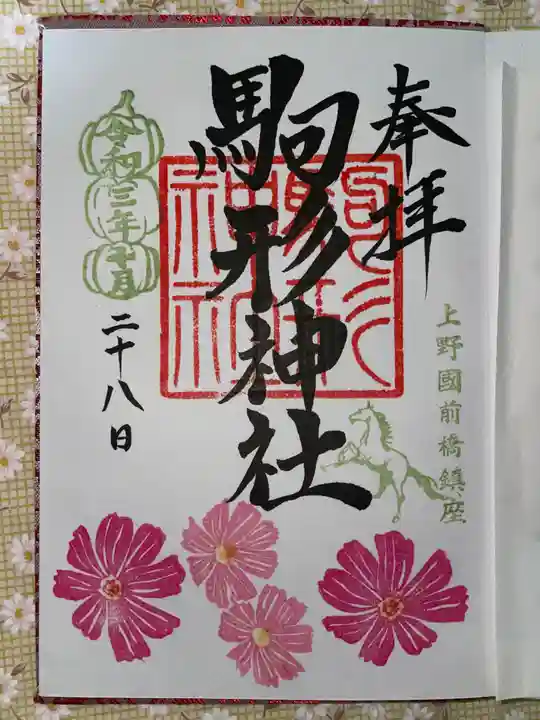 奉拝
上野國前橋鎮座
駒形神社
令和三年十月
二十八日